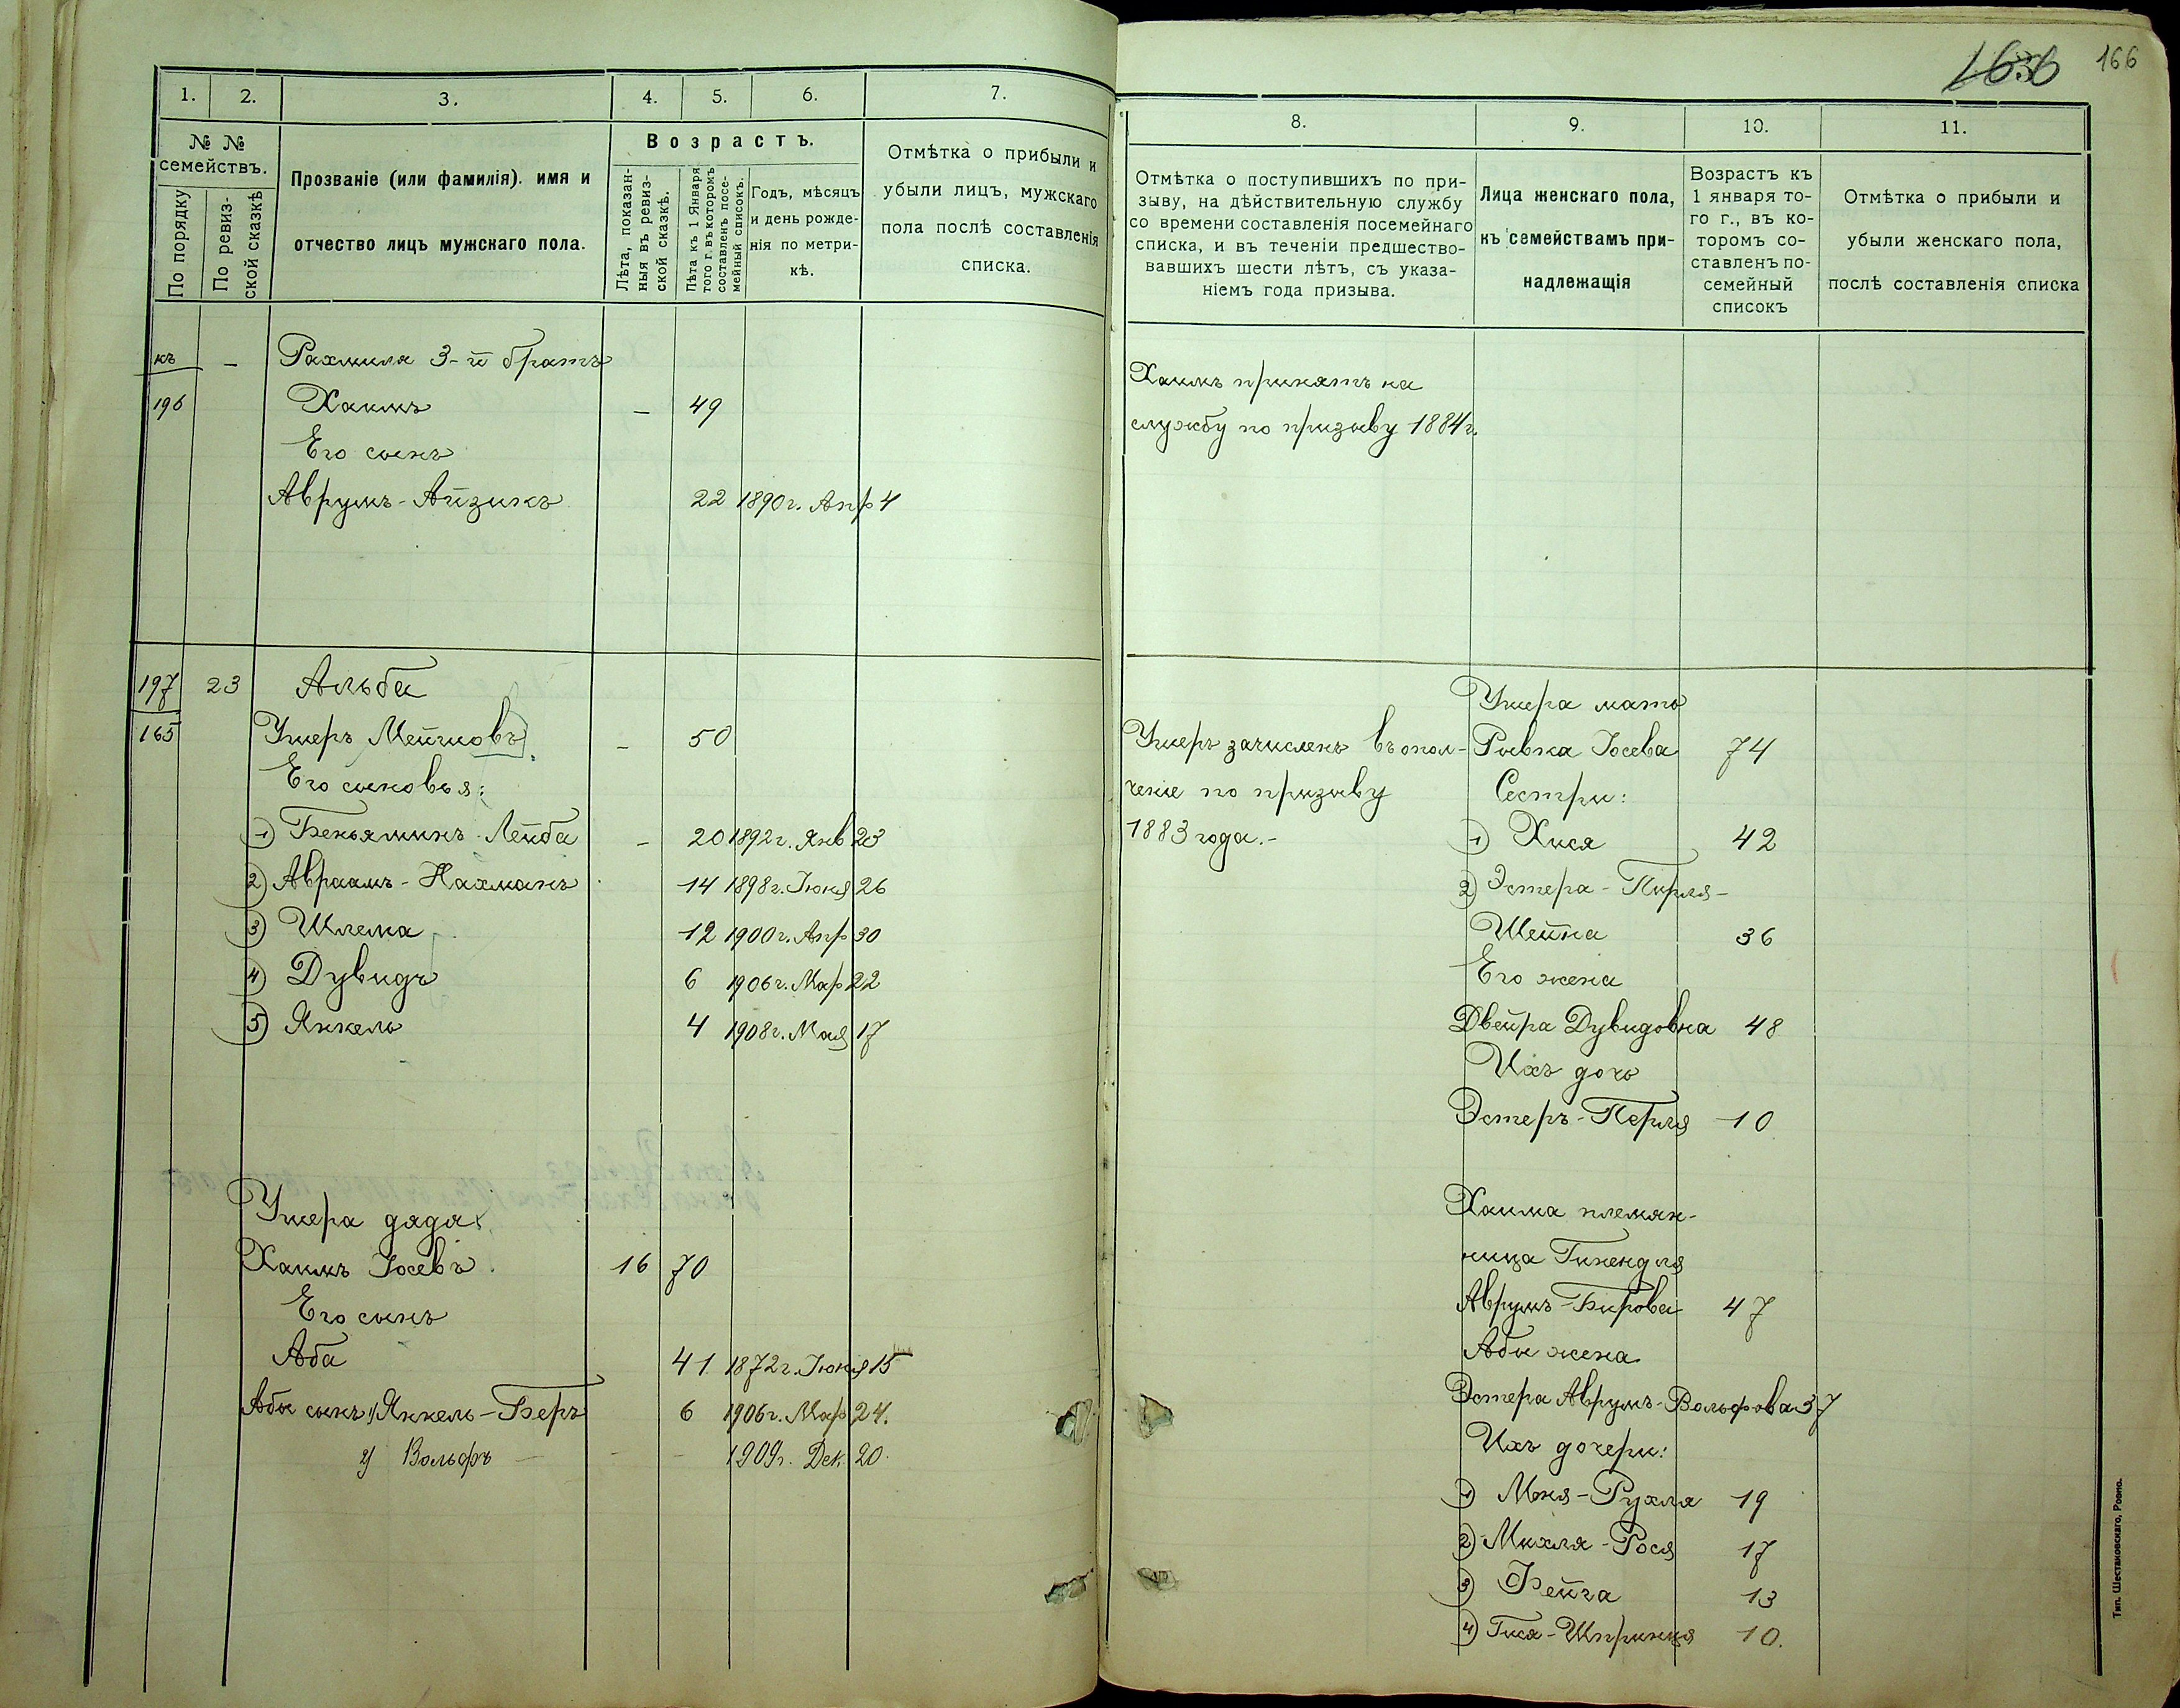 1636 166
1. 2. 3. 4. 5. 6. 7.
№ №
семействъ.
По порядку
По ревиз-
ской сказкѣ
Прозваніе (или фамилія). имя и
отчество лицъ мужскаго пола.
Возрастъ.
Лѣта, показан-
ныя въ ревиз-
ской сказкѣ.
Лѣта къ 1 Января
того г. въ которомъ
составленъ посе-
мейный списокъ.
Годъ, мѣсяцъ
и день рожде-
нія по метри-
кѣ.
Отмѣтка о прибыли и
убыли лицъ, мужскаго
пола послѣ составленія
списка.
къ — Рахмиля 3-й братъ
196 Хаимъ — 49
Его сынъ
Аврумъ-Айзикъ 22 1890 г. Апр 4
197 23 Альба
165 Ушеръ Мейшковъ — 50
Его сыновья:
1) Беньяминъ-Лейба — 20 1892 г. Янв 23
2) Авраамъ-Нахманъ 14 1898 г. Іюня 26
3) Шлема 12 1900 г. Апр 30
4) Дувидъ 6 1906 г. Мар 22
5) Янкель 4 1908 г. Мая 17
Ушера дядя
Хаимъ Іосевъ 16 70
Его сынъ
Аба 41 1872 г. Іюня 15
Абы сынъ 1/ Янкель-Беръ 6 1906 г. Мар 24.
2/ Вольфъ — — — 1909 г. Дек. 20.
8. 9. 10. 11.
Отмѣтка о поступившихъ по при-
зыву, на дѣйствительную службу
со времени составленія посемейнаго
списка, и въ теченіи предшество-
вавшихъ шести лѣтъ, съ указа-
ніемъ года призыва.
Лица женскаго пола,
къ семействамъ при-
надлежащія
Возрастъ къ
1 января то-
го г., въ ко-
торомъ со-
ставленъ по-
семейный
списокъ
Отмѣтка о прибыли и
убыли женскаго пола,
послѣ составленія списка
Хаимъ принятъ на
службу по призыву 1884 г.
Ушеръ зачисленъ въ опол-
ченіе по призыву
1883 года.-
Ушера мать
Ривка Іосева 74
Сестры:
1) Хися 42
2) Эстера-Пирля-
Шейна 36
Его жена
Двейра Дувидовна 48
Ихъ дочь
Эстеръ-Перля 10
Хаима племян-
ница Гинендля
Аврумъ-Бирова 47
Абы жена
Эстера Аврумъ-Вольфова 37
Ихъ дочери:
1) Моня-Рухля 19
2) Михля-Рося 17
3) Фейга 13
4) Гися-Шпринця 10.
Тип. Шестаковскаго, Ровно.